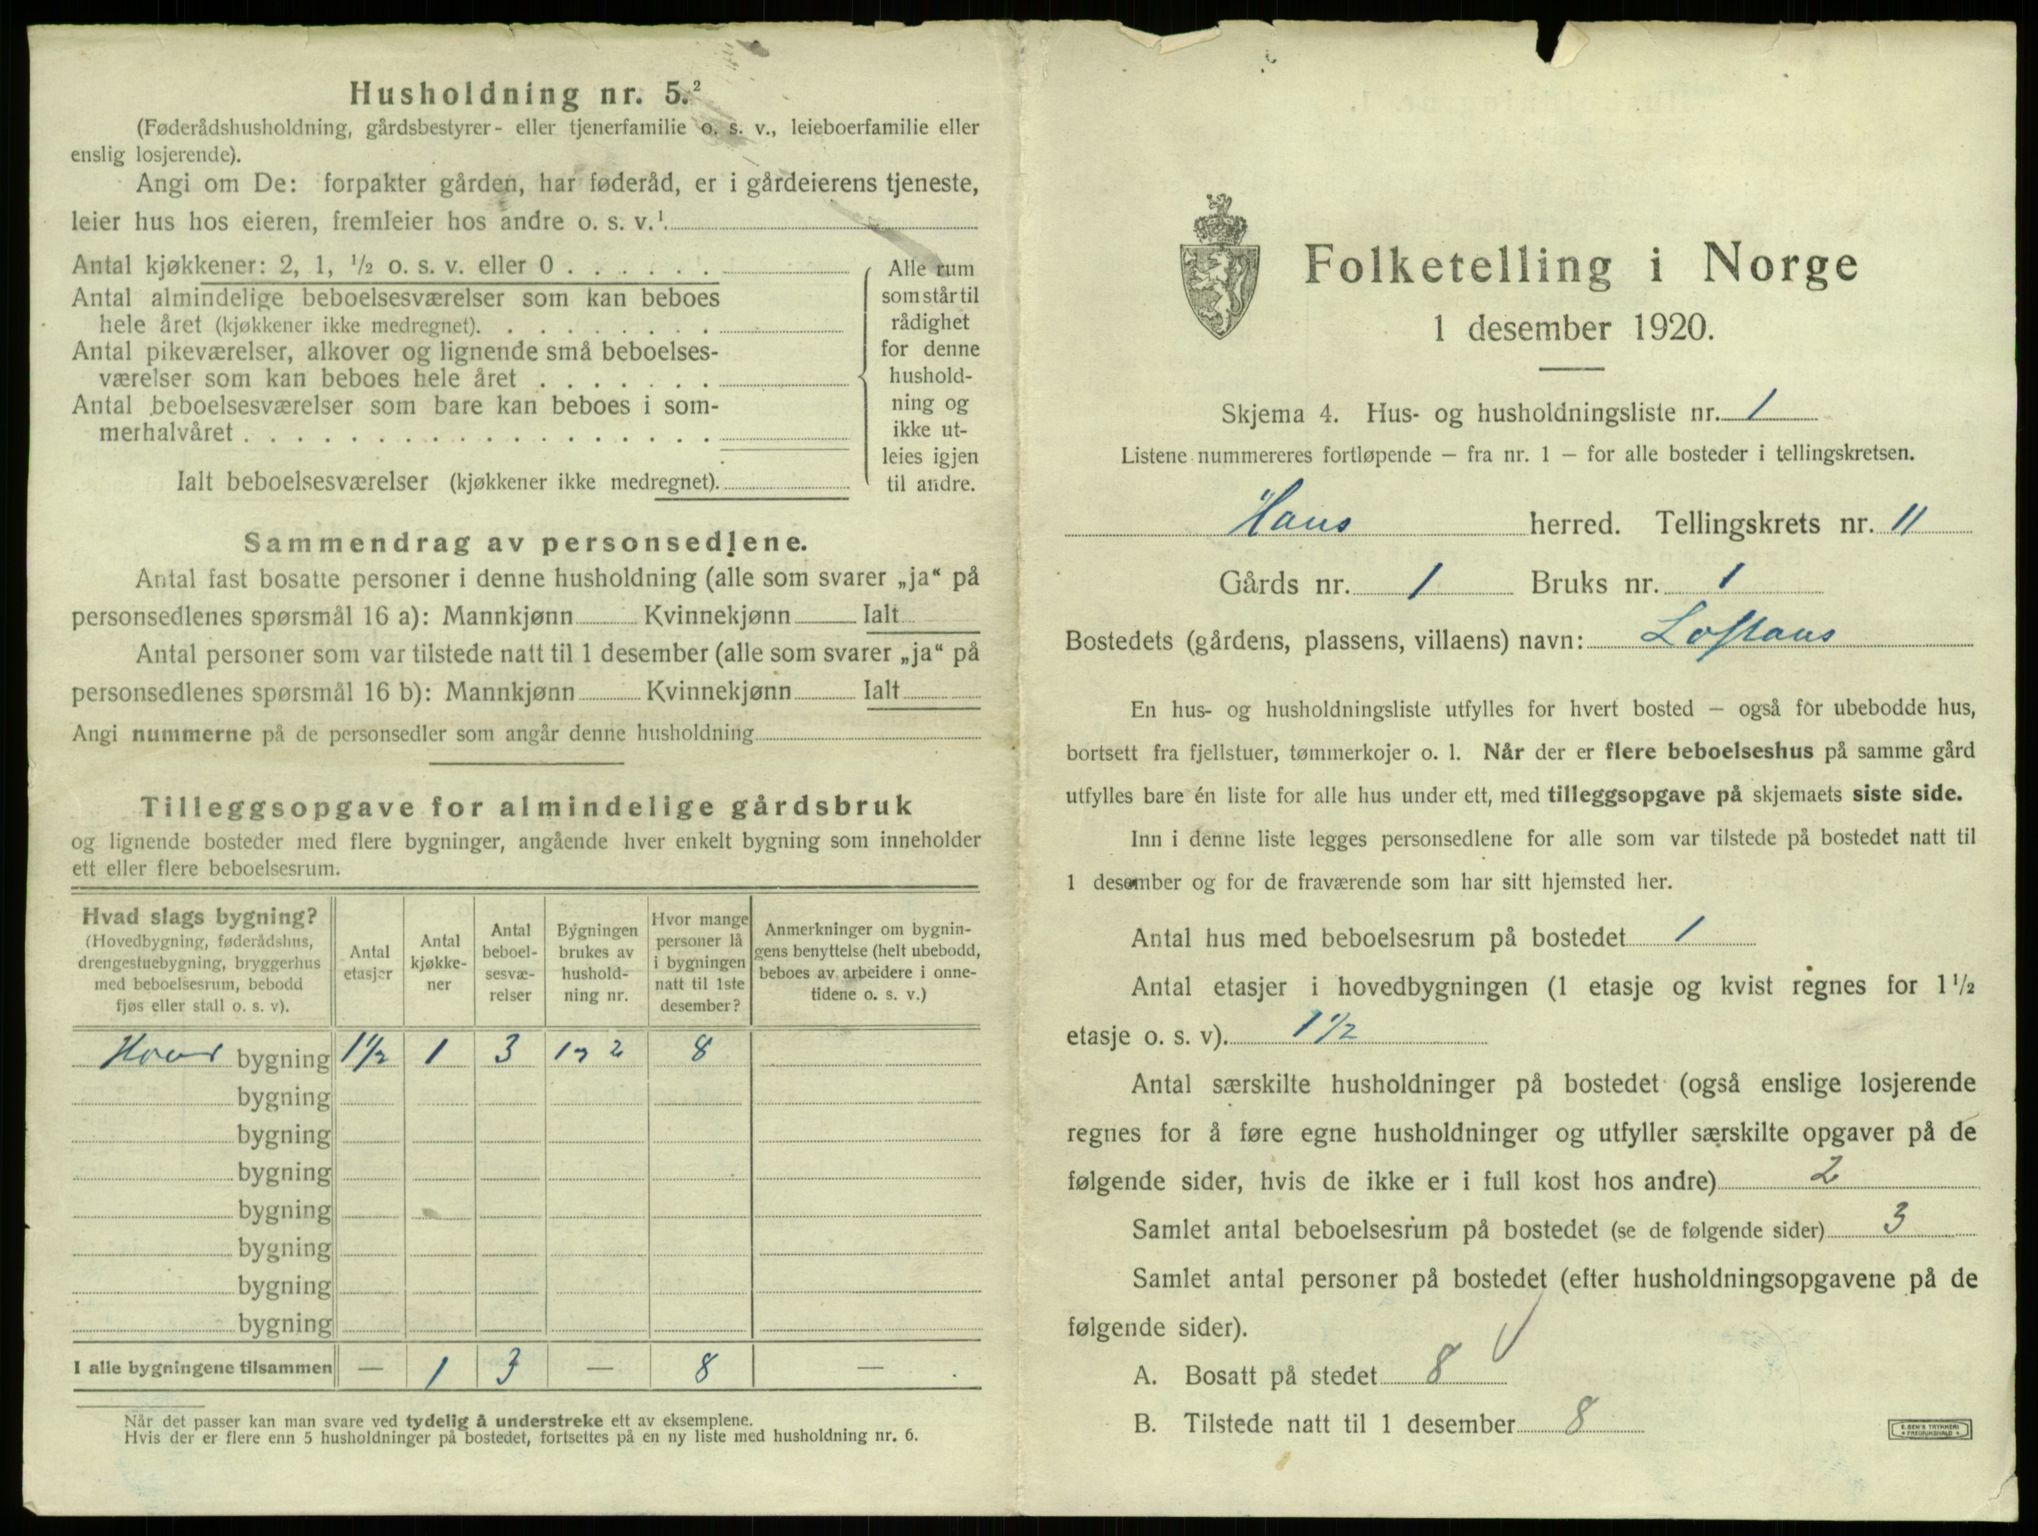 Husholdning nr. 5.²
(Føderådshusholdning, gårdsbestyrer- eller tjenerfamilie o. s. v., leieboerfamilie eller
enslig losjerende).
Angi om De: forpakter gården, har føderåd, er i gårdeierens tjeneste,
leier hus hos eieren, fremleier hos andre o. s. v.¹
Antal kjøkkener: 2, 1, ½ o. s. v. eller 0 . . . . . .
Antal almindelige beboelsesværelser som kan beboes
hele året (kjøkkener ikke medregnet). . . . . . . . .
Antal pikeværelser, alkover og lignende små beboelses-
værelser som kan beboes hele året . . . . . . .
Antal beboelsesværelser som bare kan beboes i som-
merhalvåret . . . . . . . . . . . . . . . . . .
Ialt beboelsesværelser (kjøkkener ikke medregnet).
Alle rum
som står til
rådighet
for denne
hushold-
ning og
ikke ut-
leies igjen
til andre.
Sammendrag av personsedlene.
Antal fast bosatte personer i denne husholdning (alle som svarer „ja“ på
personsedlenes spørsmål 16 a): Mannkjønn Kvinnekjønn Ialt
Antal personer som var tilstede natt til 1 desember (alle som svarer „ja“ på
personsedlenes spørsmål 16 b): Mannkjønn Kvinnekjønn Ialt
Angi nummerne på de personsedler som angår denne husholdning
Tilleggsopgave for almindelige gårdsbruk
og lignende bosteder med flere bygninger, angående hver enkelt bygning som inneholder
ett eller flere beboelsesrum.
Hvad slags bygning?
(Hovedbygning, føderådshus,
drengestuebygning, bryggerhus
med beboelsesrum, bebodd
fjøs eller stall o. s. v).
Antal
etasjer
Antal
kjøkke-
ner
Antal
beboel-
sesvæ-
relser
Bygningen
brukes av
hushold-
ning nr.
Hvor mange
personer lå
i bygningen
natt til 1ste
desember?
Anmerkninger om bygnin-
gens benyttelse (helt ubebodd,
beboes av arbeidere i onne-
tidene o. s. v.)
bygning 1½ 1 3 8
bygning
bygning
bygning
bygning
bygning
bygning
bygning
I alle bygningene tilsammen — 1 3 — 8 —
Når det passer kan man svare ved tydelig å understreke ett av eksemplene.
Hvis der er flere enn 5 husholdninger på bostedet, fortsettes på en ny liste med husholdning nr. 6.
Folketelling i Norge
1 desember 1920.
Skjema 4. Hus- og husholdningsliste nr. 1
Listene nummereres fortløpende – fra nr. 1 – for alle bosteder i tellingskretsen.
Haus herred. Tellingskrets nr. 11
Gårds nr. 1 Bruks nr. 1
Bostedets (gårdens, plassens, villaens) navn: Loftaus
En hus- og husholdningsliste utfylles for hvert bosted – også for ubebodde hus,
bortsett fra fjellstuer, tømmerkojer o. l. Når der er flere beboelseshus på samme gård
utfylles bare én liste for alle hus under ett, med tilleggsopgave på skjemaets siste side.
Inn i denne liste legges personsedlene for alle som var tilstede på bostedet natt til
1 desember og for de fraværende som har sitt hjemsted her.
Antal hus med beboelsesrum på bostedet 1
Antal etasjer i hovedbygningen (1 etasje og kvist regnes for 1½
etasje o. s. v). 1½
Antal særskilte husholdninger på bostedet (også enslige losjerende
regnes for å føre egne husholdninger og utfyller særskilte opgaver på de
følgende sider, hvis de ikke er i full kost hos andre) 2
Samlet antal beboelsesrum på bostedet (se de følgende sider) 3
Samlet antal personer på bostedet (efter husholdningsopgavene på de
følgende sider).
A. Bosatt på stedet 8
B. Tilstede natt til 1 desember 8